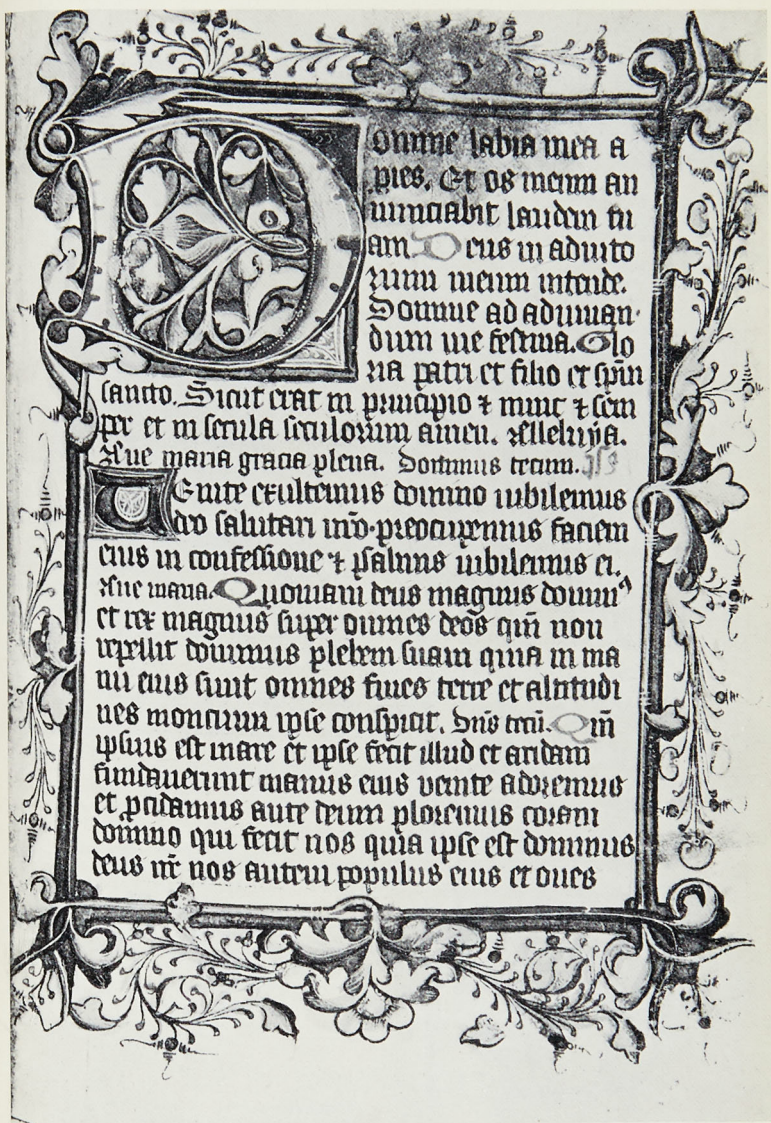 Domine labia mea a
pies. Et os meum an
nunciabit laudem tu
am Deus in adiuto
rium meum intende.
Domine ad adiuuan
dum me festina. Glo
ria patri et filio et spūi
sancto. Sicut erat in principio ⁊ nunc ⁊ sem
per et in secula seculorum amen. Alleluya.
Aue maria gracia plena. Dominus tecum.
Uenite exultemus domino iubilemus
deo salutari nr̄o preocupemus faciem
eius in confessione ⁊ psalmis iubilemus ei.
Aue maria. Quoniam deus magnus dominꝰ
et rex magnus super omnes deos qm̄ non
repellit dominus plebem suam quia in ma
nu eius sunt omnes fines terre et altitudi
nes moncium ipse conspicit. Dn̄s tecū. Qm̄
ipsius est mare et ipse fecit illud et aridam
fundauerunt manus eius venite adoremus
et ꝓcidamus ante deum ploremus coram
domino qui fecit nos quia ipse est dominus
deus nr̄ nos autem populus eius et oues